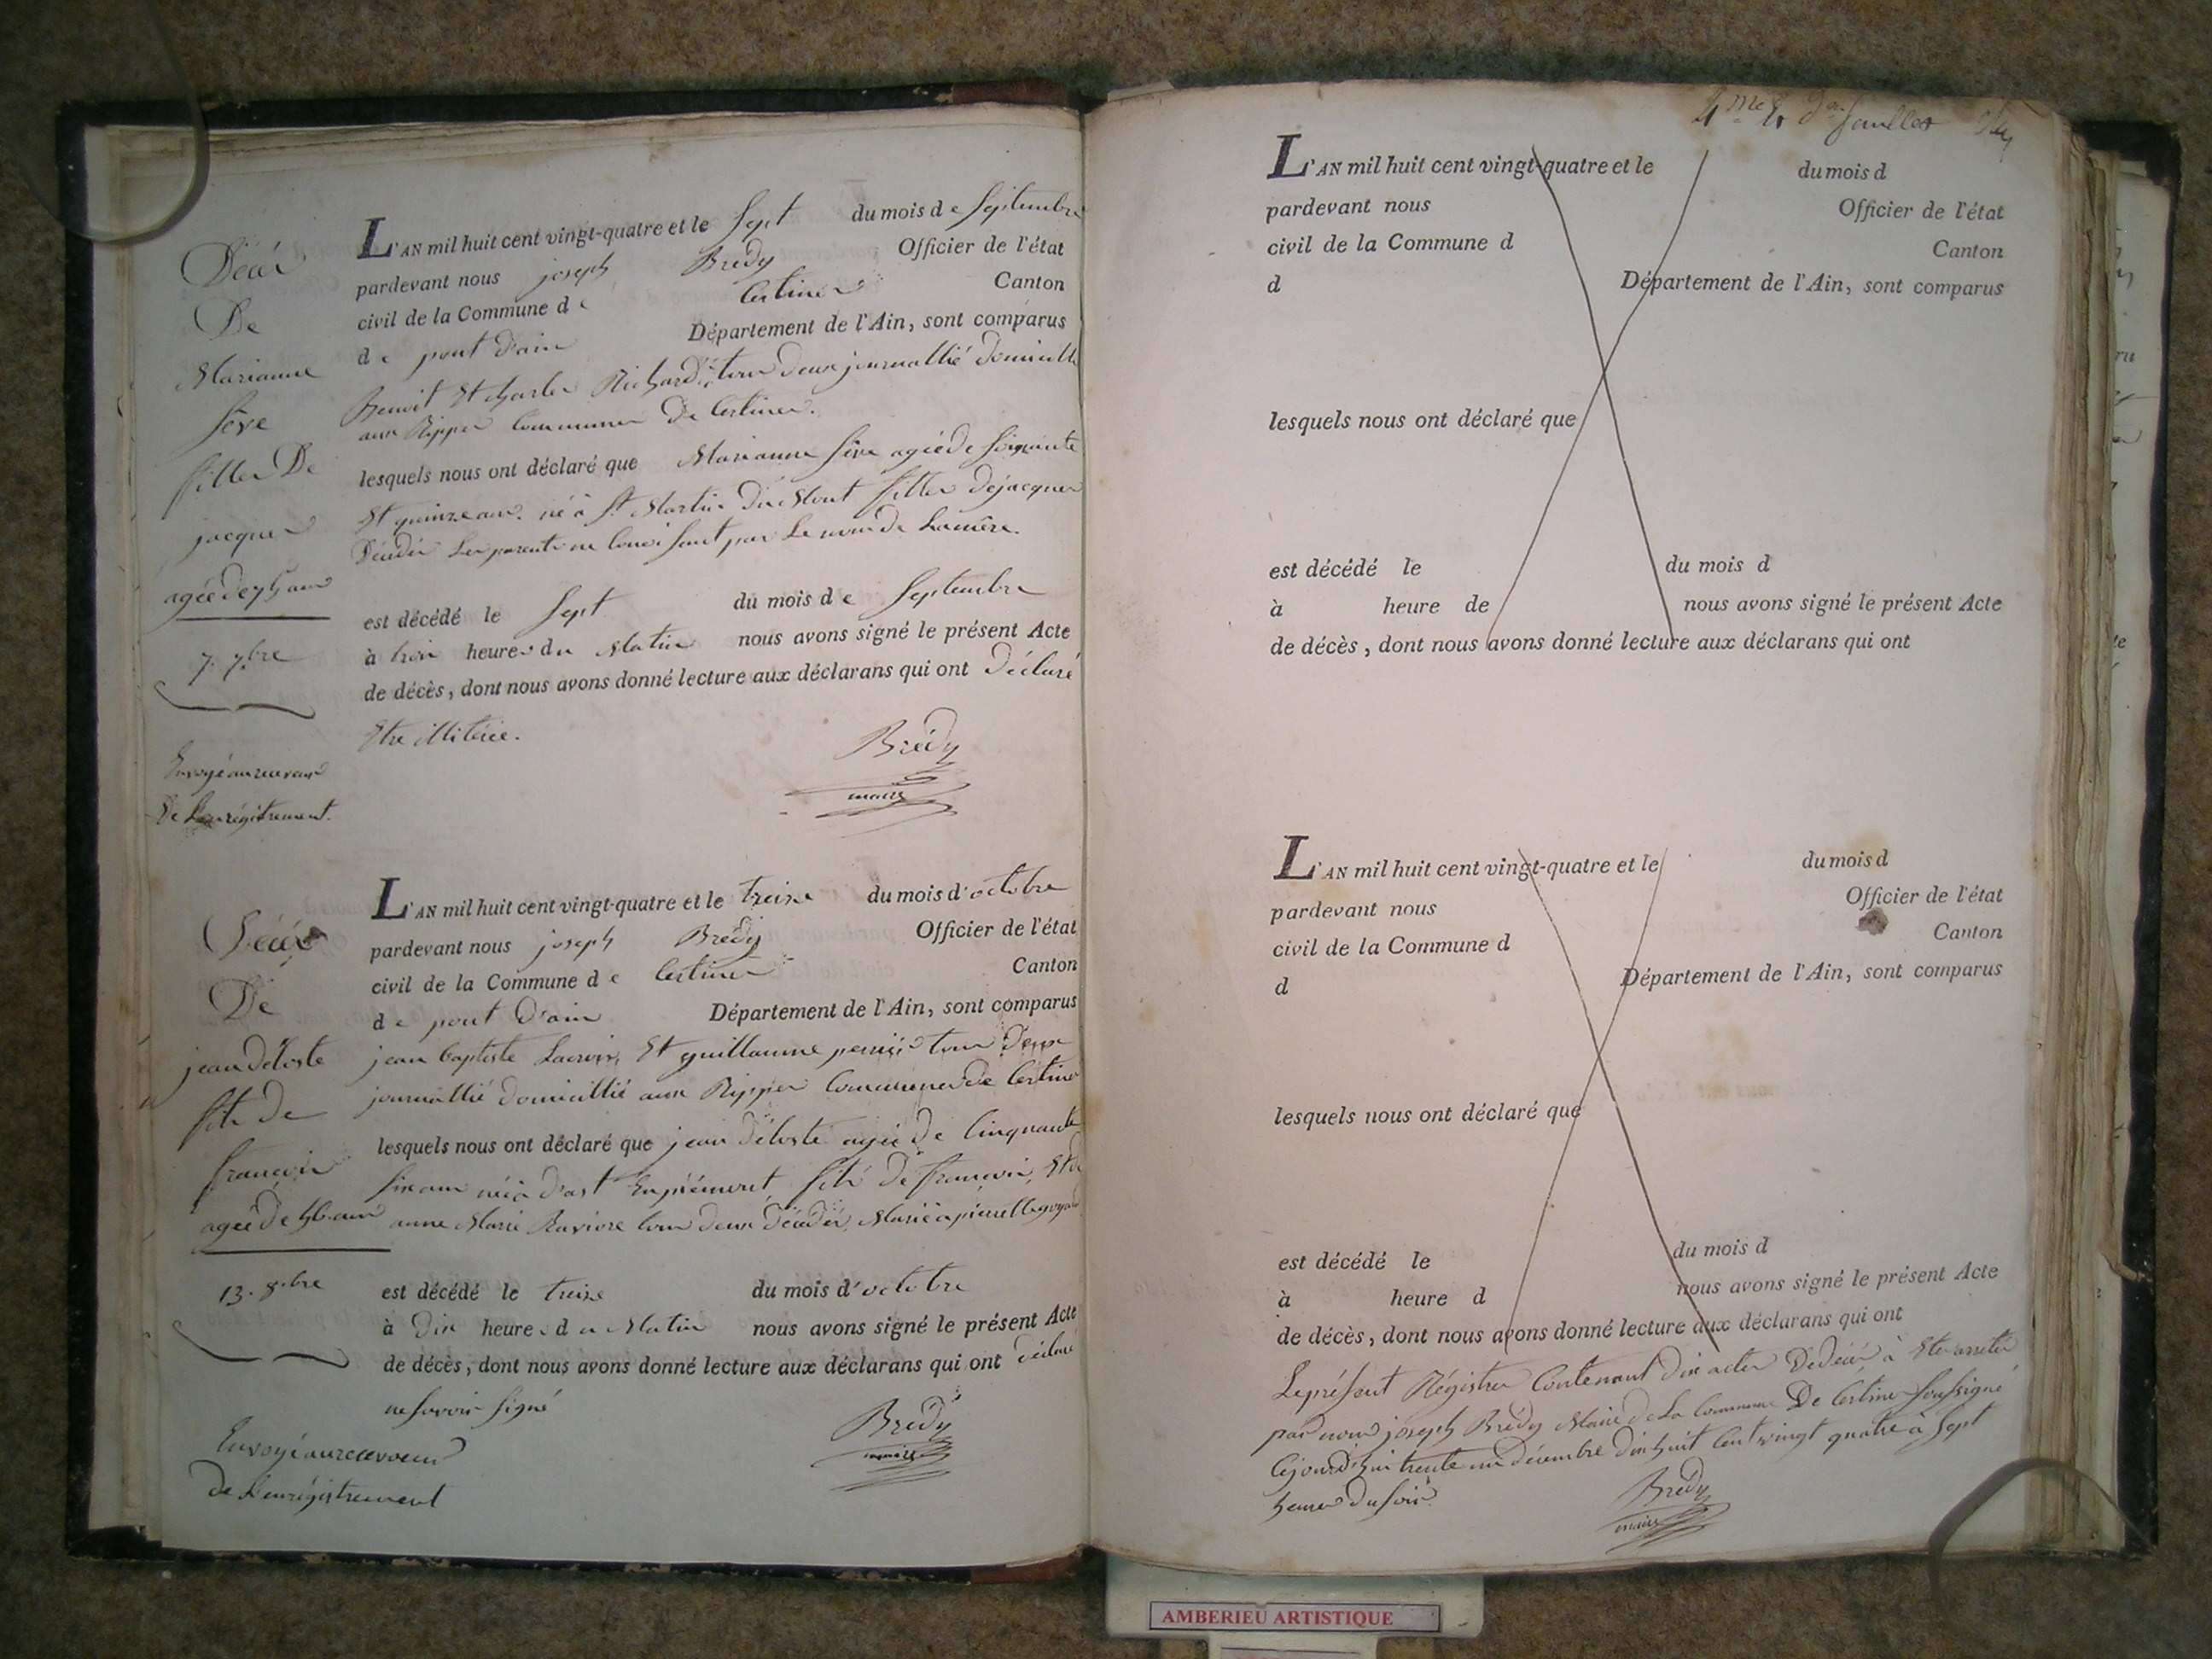 Décès
De
Marianne
Sève
filles De
jacques
agée de 75 ans
7. 7bre
Envoyé au receveur
De L'enrégistrement.
L'AN mil huit cent vingt-quatre et le Sept du mois de Septembre
pardevant nous joseph Bredy Officier de l'état
civil de la Commune de Certines Canton
de pont d'ain Département de l'Ain, sont comparus
Benoit Et charles Richard tous deux journallié domicillié
aux Rippes Communes De Certines.
lesquels nous ont déclaré que Marianne Sève agée de Soixante
Et quinze ans. né à St. Martin Du Mont filles de jacques
Décédés Les parents ne Connoissant pas Le nom de La mère.
est décédé le Sept du mois de Septembre
à trois heures du Matin nous avons signé le présent Acte
de décès, dont nous avons donné lecture aux déclarans qui ont Déclaré
Etre illitérée.
Brédy
maire
Décès
De
jean déloste
fils de
françois
agée De 56 ans
13. 8bre
Envoyé au receveur
de L'enrégistrement
L'AN mil huit cent vingt-quatre et le treize du mois d'octobre
pardevant nous joseph Bredy Officier de l'état
civil de la Commune de Certines Canton
de pont D'ain Département de l'Ain, sont comparus
jean baptiste Lacroix, Et guillaume tous Deux
journallié domicillié aux Rippes Communes de Certines
lesquels nous ont déclaré que jean déloste agée de Cinquante
Six ans né à fils De françois, Et de
anne Marie tous deux Décédés, Marié à
est décédé le treize du mois d'octobre
à Dix heures du Matin nous avons signé le présent Acte
de décès, dont nous avons donné lecture aux déclarans qui ont déclaré
ne Savoir Signé
Brédy
maire
feuillet
L'AN mil huit cent vingt-quatre et le du mois d
pardevant nous Officier de l'état
civil de la Commune d Canton
d Département de l'Ain, sont comparus
lesquels nous ont déclaré que
est décédé le du mois d
à heure de nous avons signé le présent Acte
de décès, dont nous avons donné lecture aux déclarans qui ont
L'AN mil huit cent vingt-quatre et le du mois d
pardevant nous Officier de l'état
civil de la Commune d Canton
d Département de l'Ain, sont comparus
lesquels nous ont déclaré que
est décédé le du mois d
à heure d nous avons signé le présent Acte
de décès, dont nous avons donné lecture aux déclarans qui ont
Le présent Régistre Contenant dix actes De décès à Eté arrêté
par nous joseph Brédy Maire de La Commune De Certines Soussigné
Cejourd'hui trente un décembre dix huit Cent vingt quatre à Sept
heures du Soir
Brédy
maire
AMBERIEU ARTISTIQUE